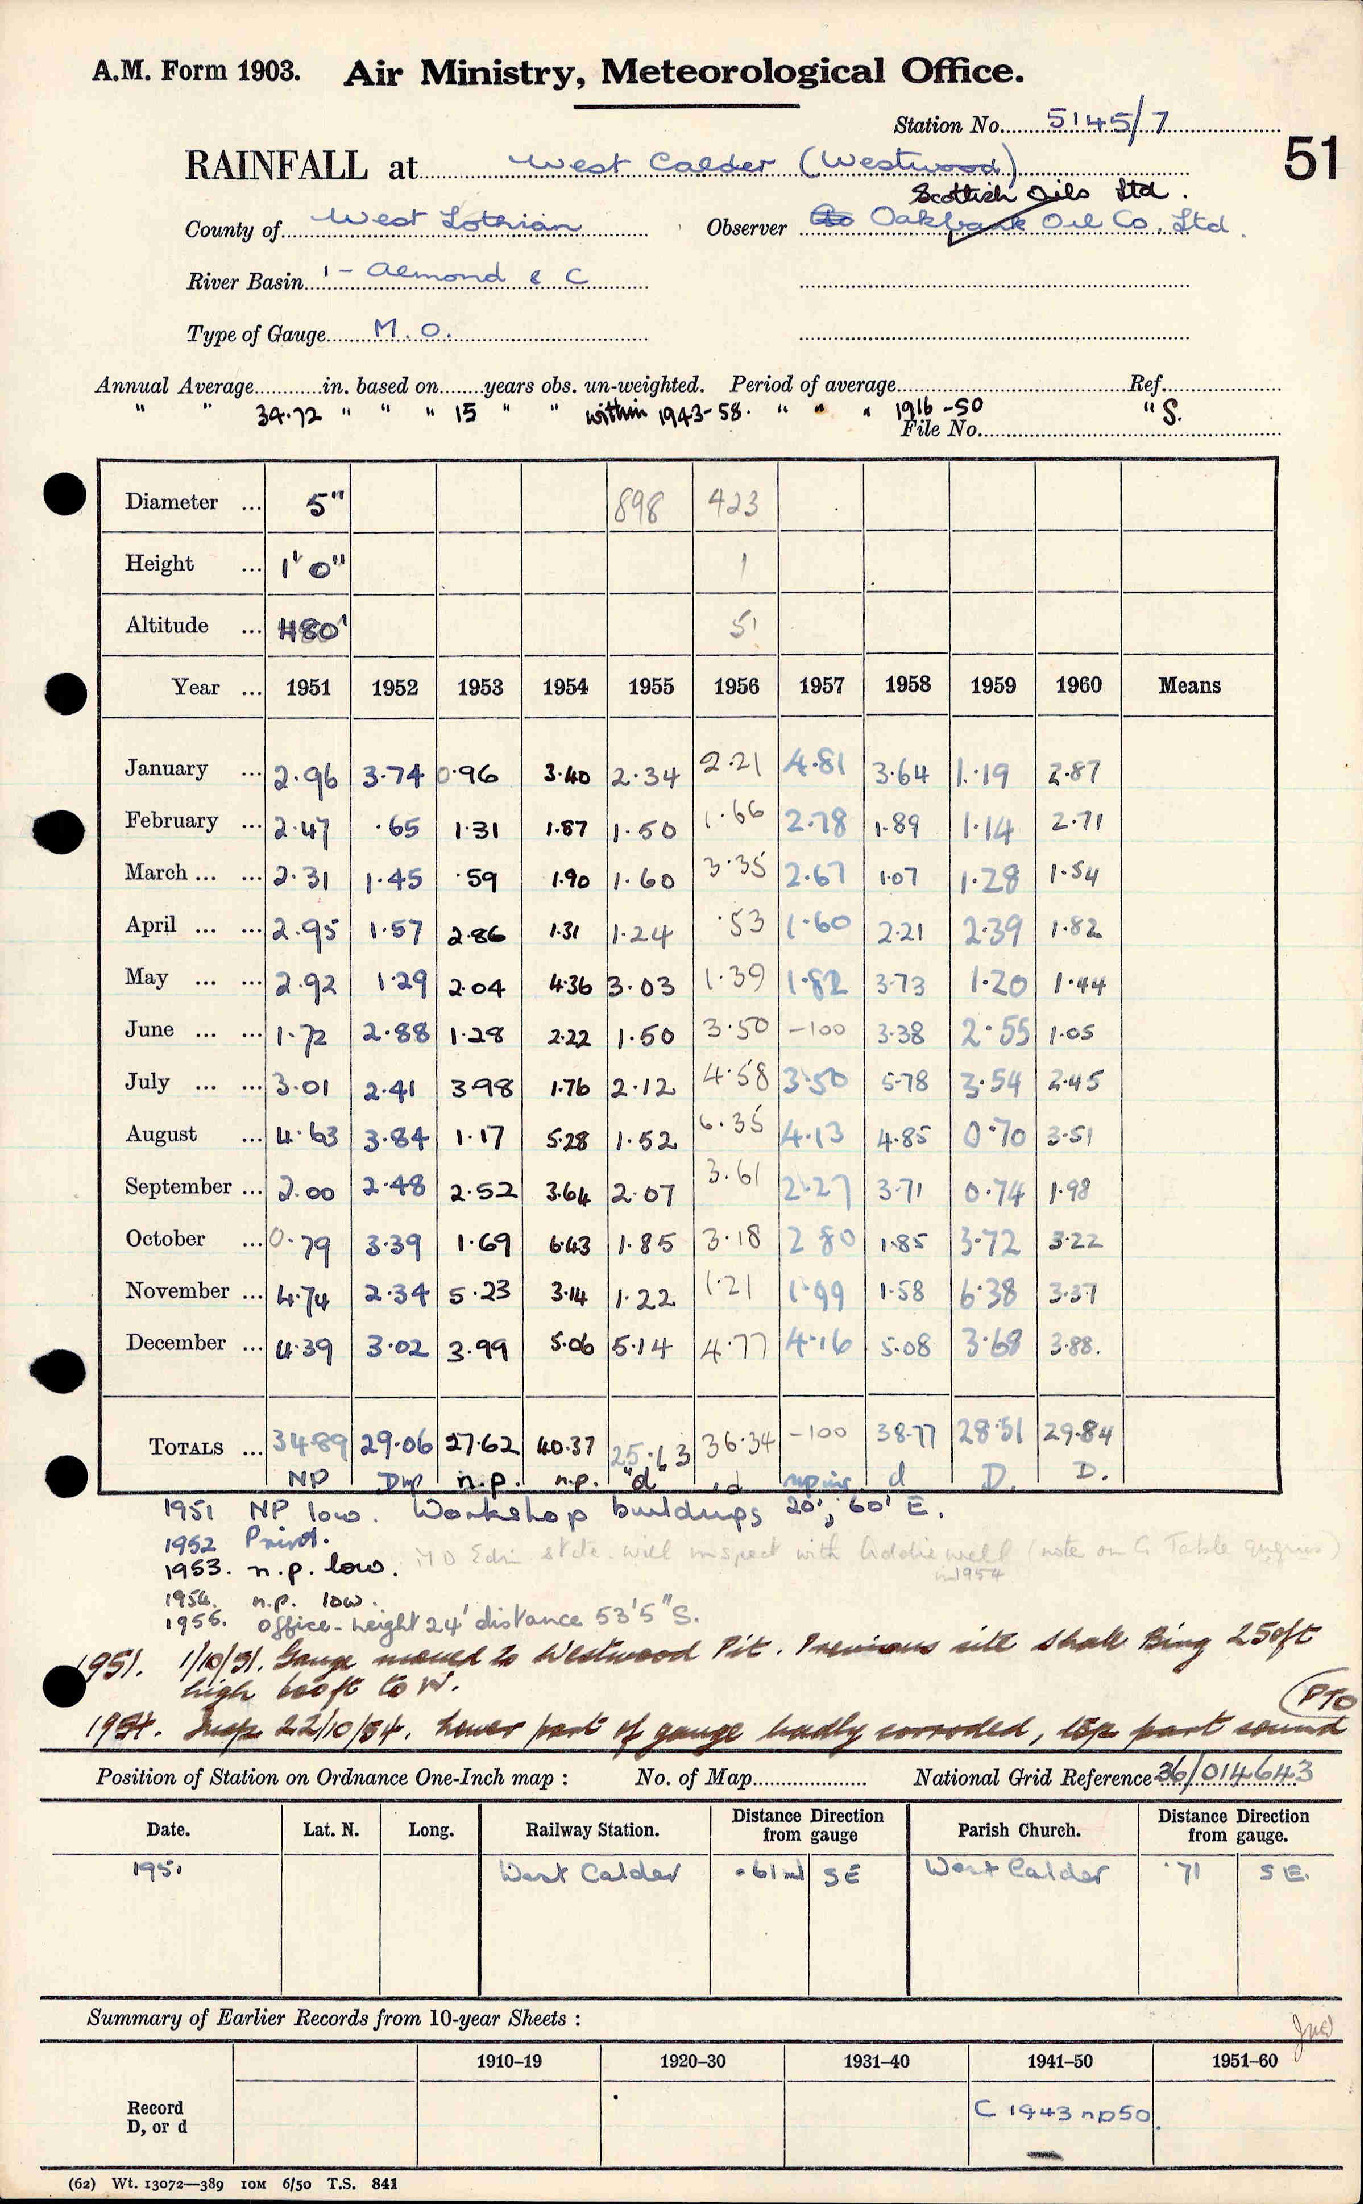 A.M. Form 1903. Air Ministry, Meteorological Office.
Station No. 5145/7
51
RAINFALL at West Calder (Westwood)
Scottish Oils Ltd.
County of West Lothian Observer Oakbank Oil Co. Ltd.
River Basin 1 - Almond & C
Type of Gauge M.O.
Annual Average in. based on years obs. un-weighted. Period of average Ref.
" " 34.72 " " " 15 " " within 1943-58. " " " 1916-50 "S.
File No.
Diameter ... 5" 898 423
Height ... 1' 0" 1
Altitude ... 480' 51
Year ... 1951 1952 1953 1954 1955 1956 1957 1958 1959 1960 Means
January ... 2.96 3.74 0.96 3.40 2.34 2.21 4.81 3.64 1.19 2.87
February ... 2.47 .65 1.31 1.87 1.50 1.66 2.78 1.89 1.14 2.71
March ... ... 2.31 1.45 .59 1.90 1.60 3.35 2.67 1.07 1.28 1.54
April ... ... 2.95 1.57 2.86 1.31 1.24 .53 1.60 2.21 2.39 1.82
May ... ... 2.92 1.29 2.04 4.36 3.03 1.39 1.82 3.73 1.20 1.44
June ... ... 1.72 2.88 1.28 2.22 1.50 3.50 -100 3.38 2.55 1.05
July ... ... 3.01 2.41 3.98 1.76 2.12 4.58 3.50 5.78 3.54 2.45
August ... 4.63 3.84 1.17 5.28 1.52 6.35 4.13 4.85 0.70 3.51
September ... 2.00 2.48 2.52 3.64 2.07 3.61 2.27 3.71 0.74 1.98
October ... 0.79 3.39 1.69 6.43 1.85 3.18 2.80 1.85 3.72 3.22
November ... 4.74 2.34 5.23 3.14 1.22 1.21 1.99 1.58 6.38 3.37
December ... 4.39 3.02 3.99 5.06 5.14 4.77 4.16 5.08 3.68 3.88.
TOTALS ... 34.89 29.06 27.62 40.37 25.13 36.34 -100 38.77 28.51 29.84
NP n.p. n.p. "d" d d D. D.
1951 NP low. Workshop buildings 20', 60' E.
1952 Print.
1953. n.p. low. M O Edin state will inspect with Addiewell (note on G Table
in 1954
1954. n.p. low.
1955. Office - height 24' distance 53'5" S.
1951. 1/10/51. Gauge moved to Westwood Pit. Previous site Shale Bing 250ft
high 600ft to W.
PTO
1954. Insp 22/10/54. Lower part of gauge badly corroded, top part sound
Position of Station on Ordnance One-Inch map : No. of Map National Grid Reference 36/014643
Date. Lat. N. Long. Railway Station. Distance Direction from gauge Parish Church. Distance Direction from gauge.
1951 West Calder .61 ml SE West Calder .71 SE.
Summary of Earlier Records from 10-year Sheets :
1910-19 1920-30 1931-40 1941-50 1951-60
Record
D, or d
C 1943 np50
(62) Wt. 13072—389 10M 6/50 T.S. 841